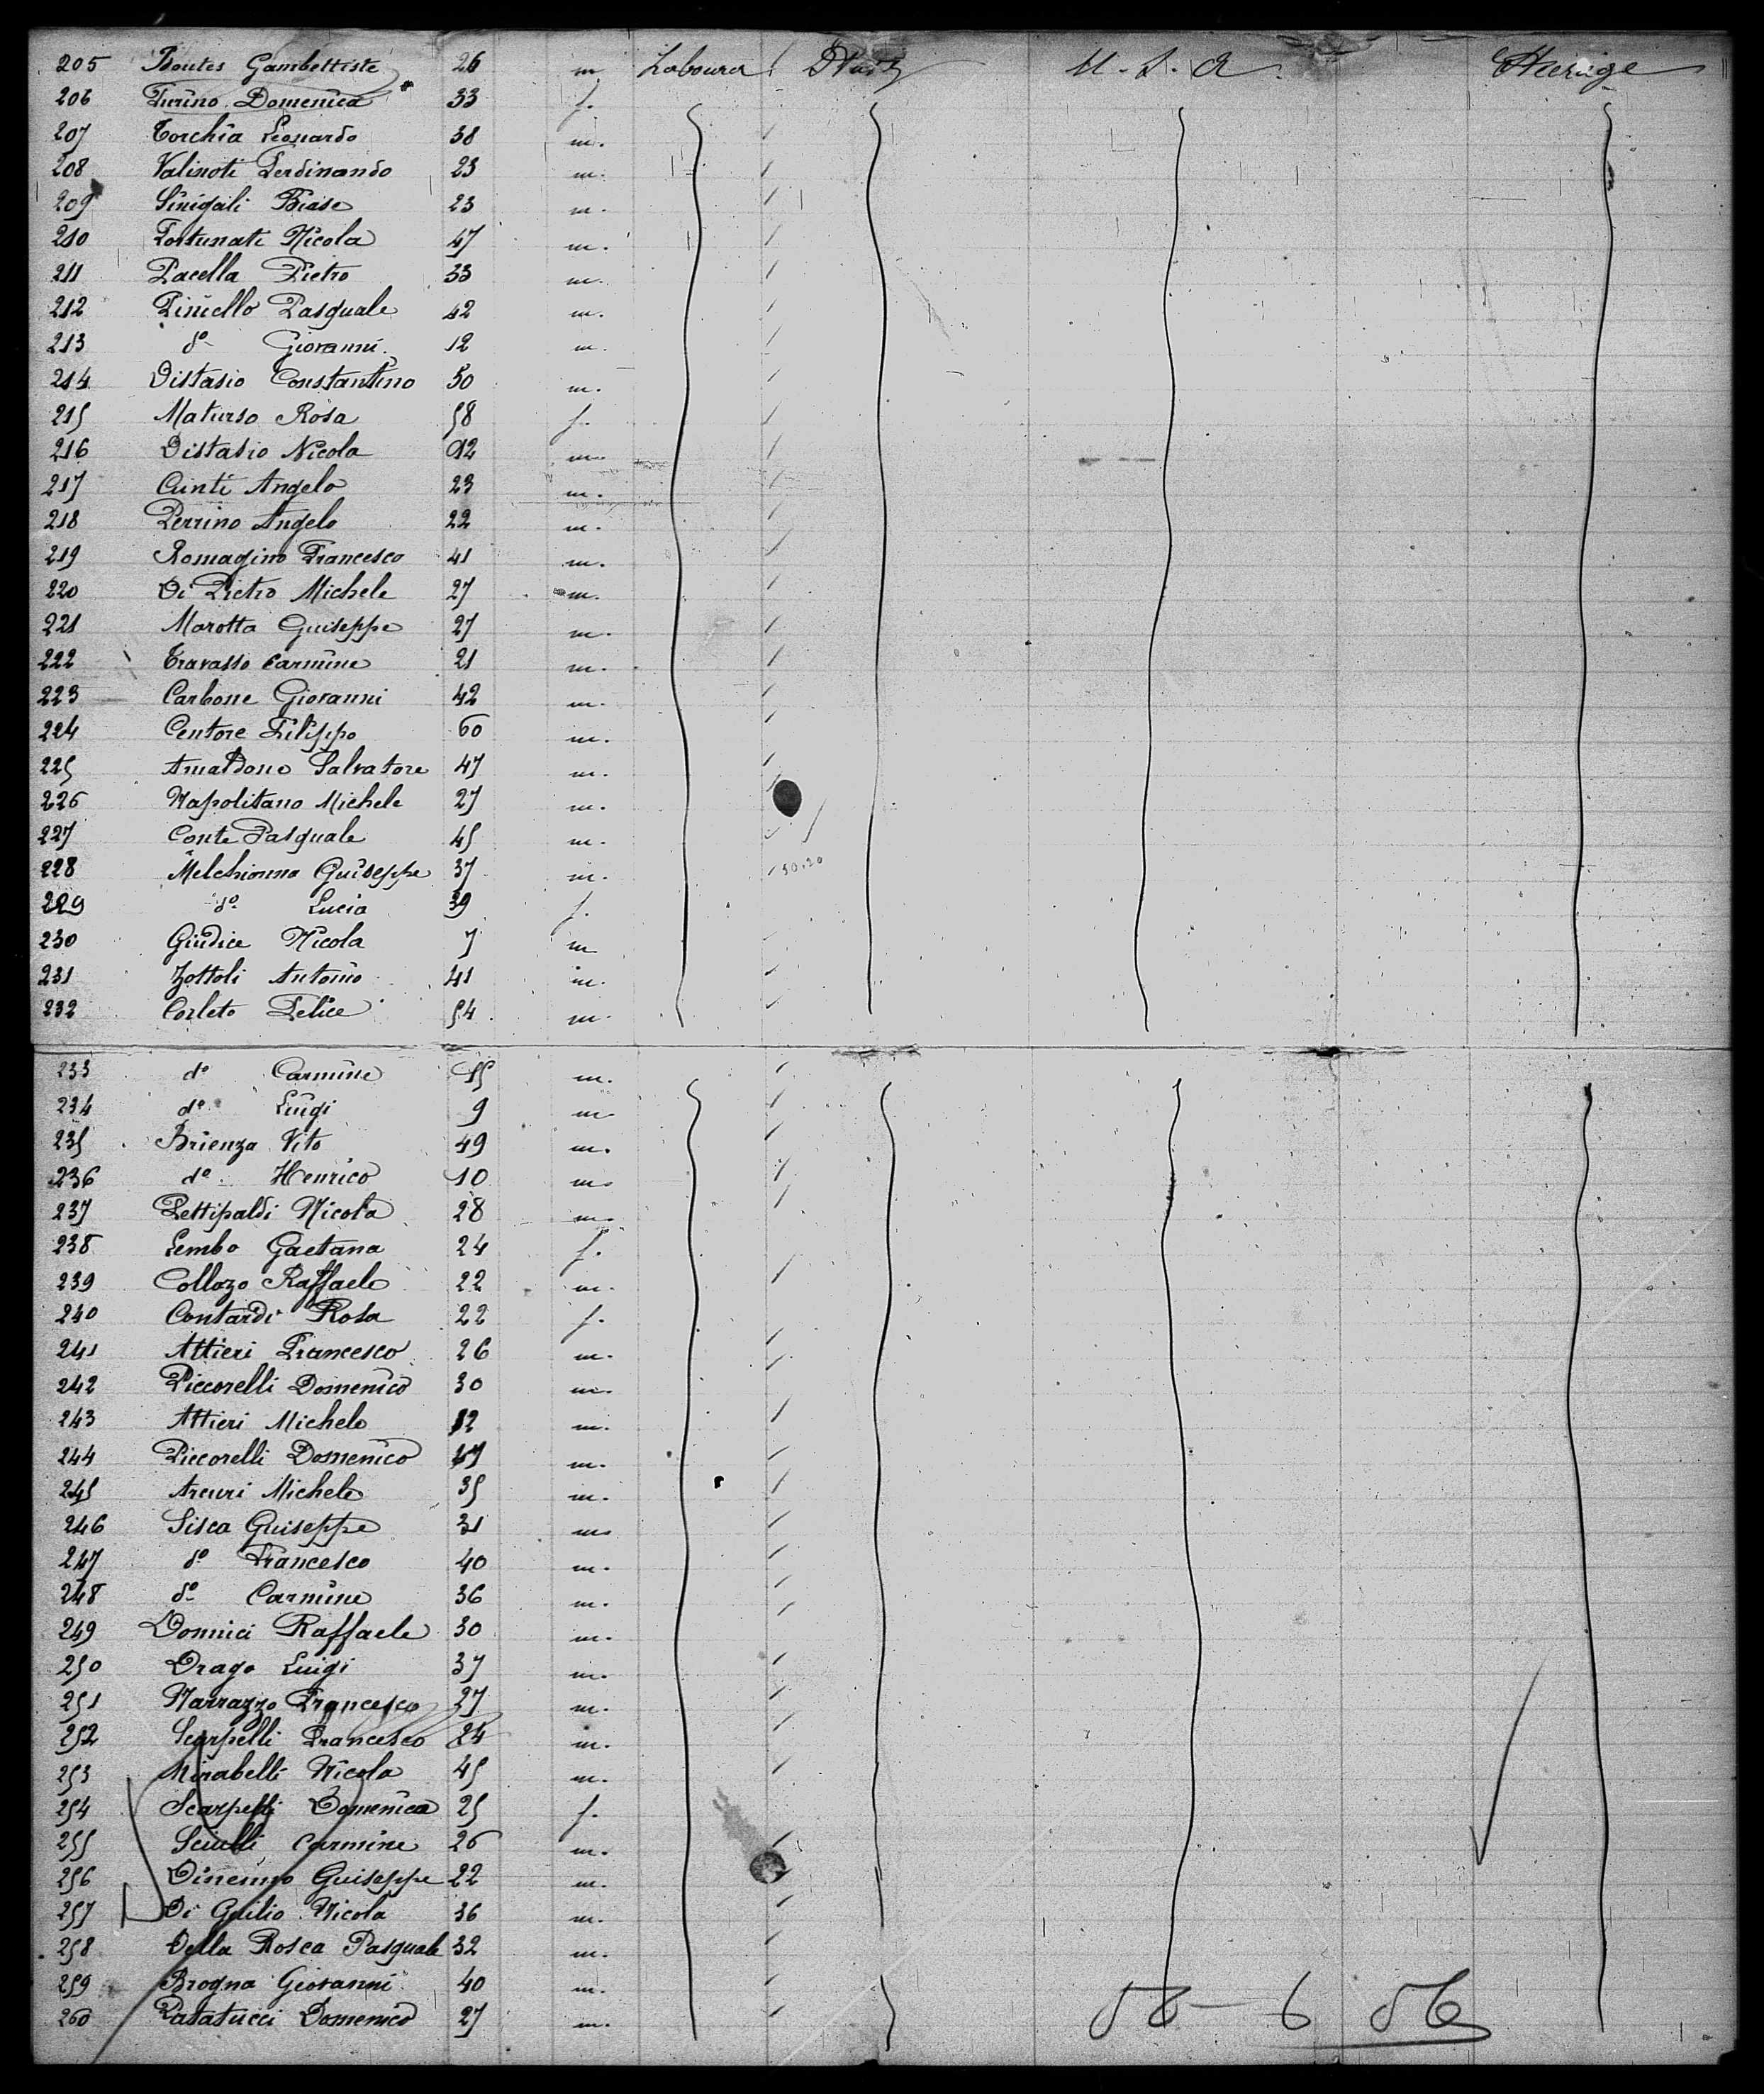 205 Boutes Gambettiste 26 m Labourer Italy U.S.A. Steerage
206 Turino Domenica 33 f.
207 Torchia Leonardo 38 m.
208 Valinoti Ferdinando 23 m.
209 Sinigali Biase 23 m.
210 Fortunati Nicola 47 m.
211 Pacella Pietro 33 m.
212 Piniello Pasquale 42 m.
213 do Giovanni 12 m.
214 Distasio Constantino 50 m.
215 Maturso Rosa 58 f.
216 Distasio Nicola 12 m.
217 Cunti Angelo 23 m.
218 Perrino Angelo 22 m.
219 Romagino Francesco 41 m.
220 Di Pietro Michele 27 m.
221 Marotta Guiseppe 27 m.
222 Travasso Carmine 21 m.
223 Carbone Giovanni 42 m.
224 Centore Filippo 60 m.
225 Salvatore 47 m.
226 Napolitano Michele 27 m.
227 Conte Pasquale 45 m.
228 Melchionna Guiseppe 37 m.
229 do Lucia 39 f.
230 Giudice Nicola 7 m
231 Zottoli Antonio 41 m.
232 Corleto Felice 54 m.
233 do Carmine 15 m.
234 do Luigi 9 m.
235 Brienza Vito 49 m.
236 do Henrico 10 m.
237 Pettipaldi Nicola 28 m.
238 Lembo Gaetana 24 f.
239 Collazo Raffaele 22 m.
240 Contardi Rosa 22 f.
241 Attieri Francesco 26 m.
242 Piccorelli Domenico 30 m.
243 Attieri Michele 12 m.
244 Piccorelli Domenico 47 m.
245 Arcuri Michele 35 m.
246 Sisca Guiseppe 31 m.
247 do Francesco 40 m.
248 do Carmine 36 m.
249 Dominici Raffaele 30 m.
250 Drago Luigi 37 m.
251 Narrazzo Francesco 27 m.
252 Scarpelli Francesco 24 m.
253 Mirabelli Nicola 45 m.
254 Scarpelli Domenica 25 f.
255 Sciulli Carmine 26 m.
256 Guiseppe 22 m.
257 Di Guilio Nicola 36 m.
258 Della Rosca Pasquale 32 m.
259 Brogna Giovanni 40 m.
260 Patatucci Domenico 27 m.
50 - 6 56